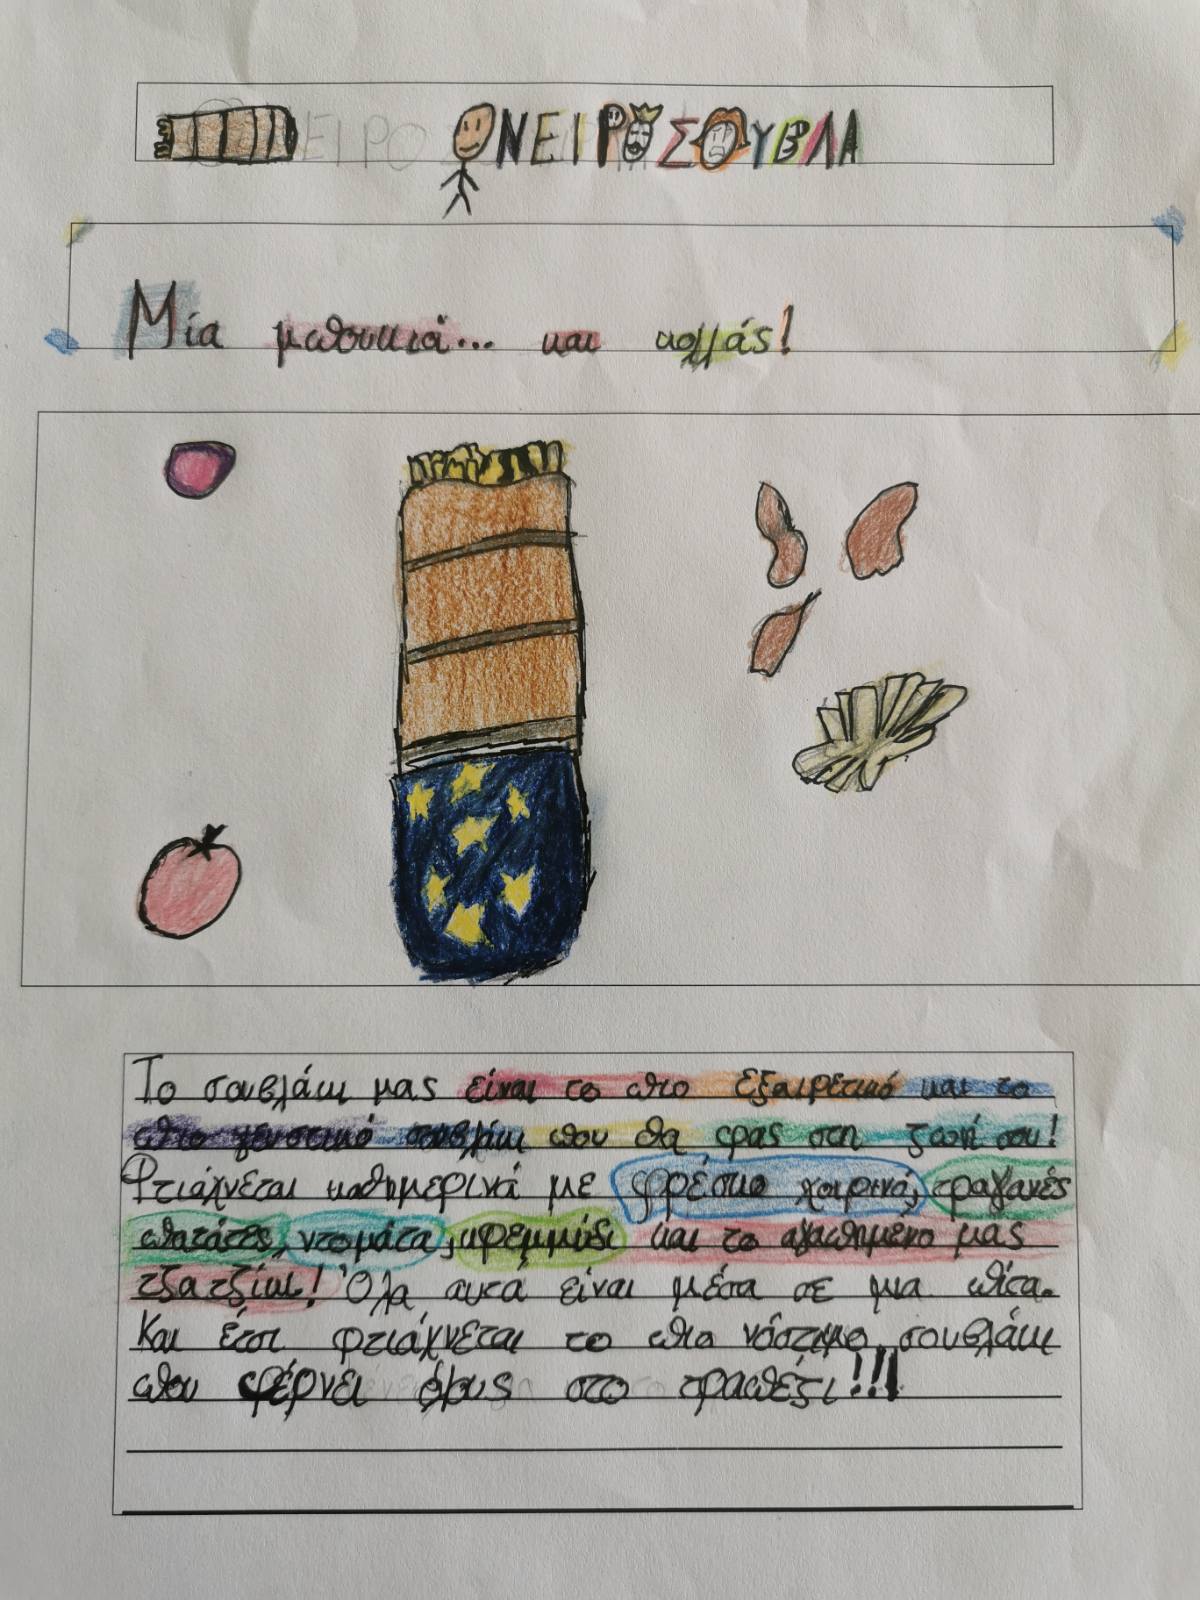 ΟΝΕΙΡΟΣΟΥΒΛΑ
Μία μπουκιά... και κολλάς!
Το σουβλάκι μας είναι το πιο εξαιρετικό και το
πιο γευστικό σουβλάκι που θα φας στη ζωή σου!
Φτιάχνεται καθημερινά με φρέσκο χοιρινό, τραγανές
πατάτες, ντομάτα, κρεμμύδι και το αγαπημένο μας
τζατζίκι! Όλα αυτά είναι μέσα σε μια πίτα.
Και έτσι φτιάχνεται το πιο νόστιμο σουβλάκι
που φέρνει όλους στο τραπέζι!!!